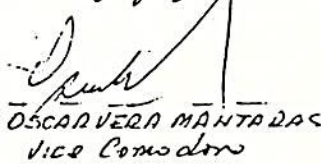 OSCAR VERA MANTARAS
Vice Comodoro